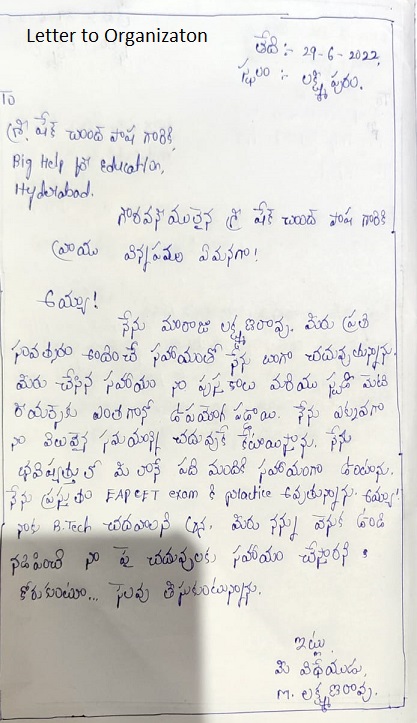 Letter to Organizaton
తేది :- 29-6-2022,
స్థలం :- లక్ష్మీపురం.
To
శ్రీ. షేక్ చాంద్ పాష గారికి,
Big Help for Education,
Hyderabad.
గౌరవనీయులైన శ్రీ షేక్ చాంద్ పాష గారికి
వ్రాయు విన్నపము ఏమనగా!
అయ్యా!
నేను మారాజు లక్ష్మణరావు. మీరు ప్రతి
సంవత్సరం అందించే సహాయంతో నేను బాగా చదువుతున్నాను.
మీరు చేసిన సహాయం నా పుస్తకాలు మరియు స్టడీ మెటి
రియల్స్‌కు ఎంతగానో ఉపయోగ పడ్డాయి. నేను ఎక్కువగా
నా విలువైన సమయాన్ని చదువుకే కేటాయిస్తాను. నేను
భవిష్యత్తు లో మీ లానే పది మందికి సహాయంగా ఉంటాను.
నేను ప్రస్తుతం EAPCET exam కి practice అవుతున్నాను. అయ్యా!
నాకు B.Tech చదవాలని మీరు నన్ను వెనుక ఉండి
నడిపించే నా పై చదువులకు సహాయం చేస్తారని
కోరుకుంటూ... సెలవు తీసుకుంటున్నాను.
ఇట్లు,
మీ విధేయుడు,
M. లక్ష్మణరావు.